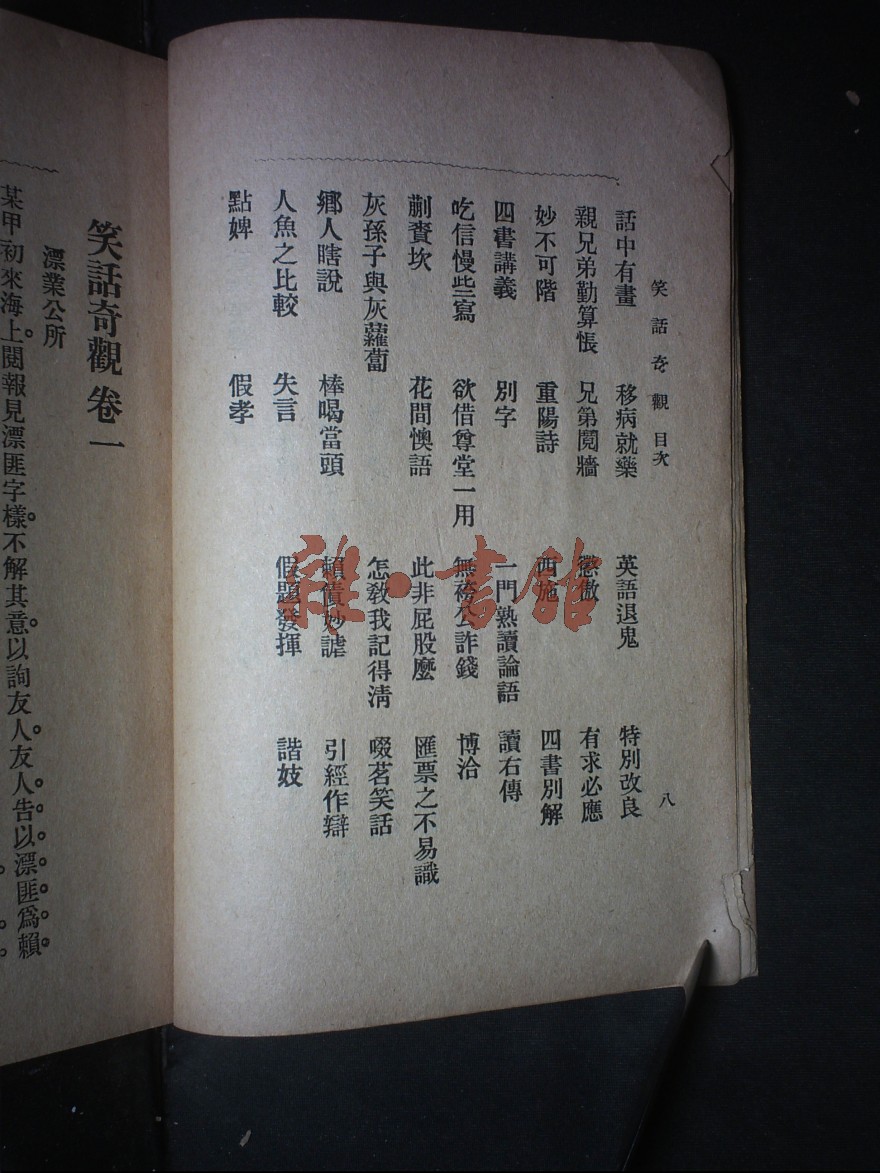 笑話奇觀 目次
八
話中有畫 移病就藥 英語退鬼 特別改良
親兄弟勤算帳 兄弟鬩牆 懲傲 有求必應
妙不可階 重陽詩 西施 四書別解
四書講義 別字 一門熟讀論語 讀右傳
吃信慢些寫 欲借尊堂一用 無袴公詐錢 博洽
蒯賚坎 花間懊語 此非屁股麼 匯票之不易識
灰孫子與灰蘿蔔 怎敎我記得淸 啜茗笑話
鄉人瞎說 棒喝當頭 賴債妙謔 引經作辯
人魚之比較 失言 假題發揮 諧妓
點婢 假孝
笑話奇觀 卷一
漂業公所
某甲初來海上。閱報見漂匪字樣。不解其意。以詢友人。友人告以漂匪爲賴
雜·書館